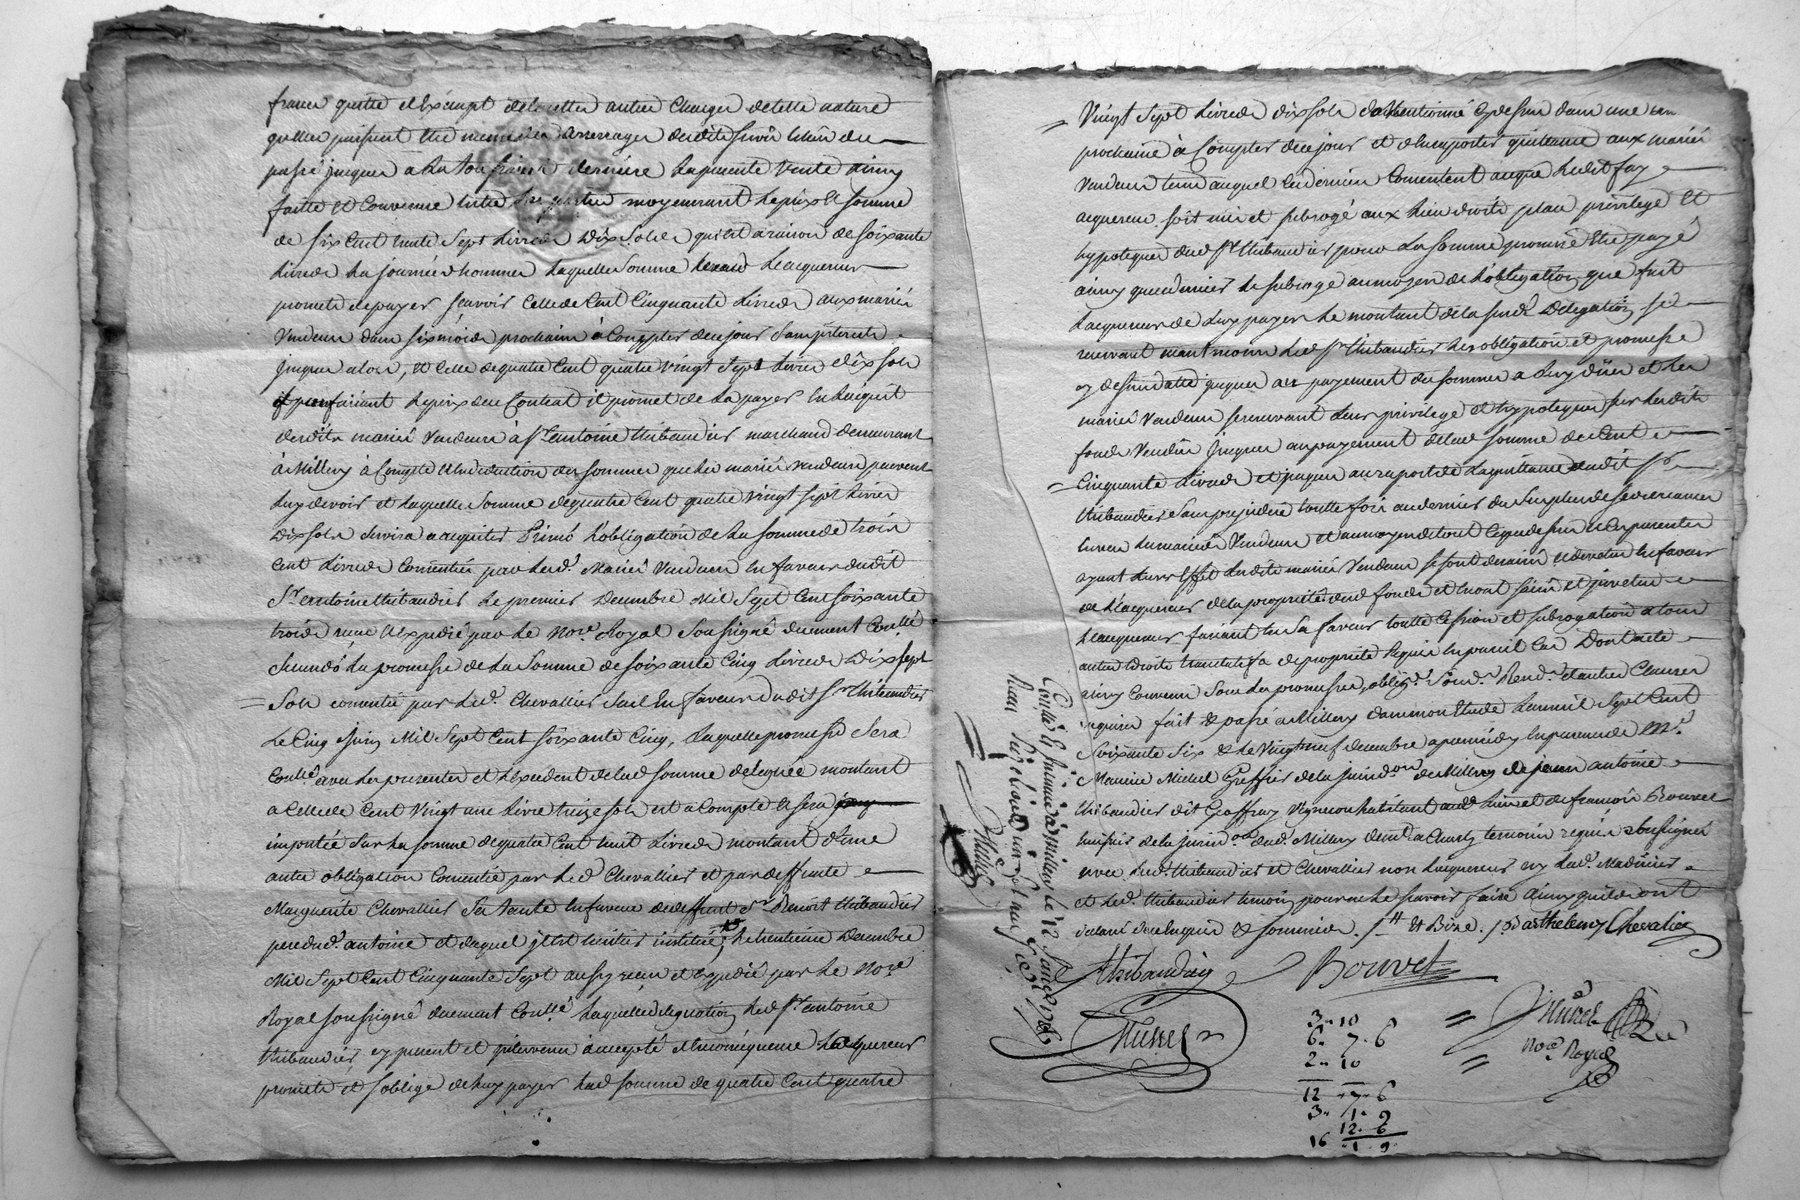 franc quitte et exempt de toutes autres charges de telle nature
quelles puissent être meme des arrerages desdits servis laiss du
passé jusques a la toussaint derniere la presente vente ainsy
faitte et convenue entre les parties moyennant le prix et somme
de six cent trente sept livres dix sols qui est a raison de soixante
livres la journée d'hommes laquelle somme led acquereur
promet de payer sçavoir celle de cent cinquante livres aux mariés
vendeurs dans six mois prochain à compter de ce jour sans interets
jusques alors, et celle de quatre cent quatre vingt sept livres dix sols
parfaisant le prix du contrat il promet de la payer en l'acquit
desdits mariés vendeurs à sr antoine thibaudier marchand demeurant
à Millery à compte et en deduction des sommes que les mariés vendeurs peuvent
luy devoir et laquelle somme de quatre cent quatre vingt sept livres
dix sols servira a acquitter Primò l'obligation de la somme de trois
cent livres consentie par lesd. mariés vendeurs en faveur dudit
Sr antoine thibaudier le premier decembre mil sept cent soixante
trois reçue et expedié par le nore Royal soussigné duement Conllé
secundò la promesse de la somme de soixante cinq livres dix sept
sols consentie par led. Chevallier seul en faveur dudit sr thibaudier
le cinq juin mil sept cent soixante cinq, laquelle promesse sera
Conllé avec les presentes et l'excedent de lad somme deleguée montant
a celle de cent vingt une livre treize sols est a compte et sera
imputée sur la somme de quatre cent huit livres montant d'une
autre obligation consentie par led Chevallier et par deffunte
Marguerite Chevallier sa tante en faveur de deffunt sr Benoit thibaudier
pere dud. antoine et duquel il est heritier institué, le trentieme decembre
mil sept cent cinquante sept aussy reçue et expedié par le nore
Royal soussigné duement Conllé laquelle delegation led sr antoine
thibaudier, cy present et intervenu a accepté et en consequence l'acquereur
promet et s'oblige de luy payer lad somme de quatre cent quatre
vingt sept livres dix sols cy dessus dans une
prochaine à compter de ce jour et d'en aporter quittance aux mariés
vendeurs tems auquel ces derniers consentent a ce que ledit
acquereur soit mis et subrogé aux lieu droits place privilege et
hypoteques dud sr thibaudier pour la somme promise être payé
ainsy que ce dernier le subroge au moyen de l'obligation que fait
l'acquereur de luy payer le montant de la susd. delegation se
reservant neantmoins led sr thibaudier les obligations et promesse
cy dessus datté jusques au payement des sommes a luy dües et les
mariés vendeurs se reservant leurs privilege et hypoteques sur lesdits
fonds vendus jusques au payement de lad somme de cent
cinquante livres et jusques au raport de la quittance dudit sr
thibaudier sans prejudice toutte fois au dernier du surplus de ses creances
envers les mariés vendeurs et au moyen de tout ce que dessus et les presentes
ayant leurs effet lesdits mariés vendeurs se sont demis et devetus en faveur
de l'acquereur de la proprieté dud fonds et l'en ont saisi et invetu
l'acquereur faisant en sa faveur toutte cession et subrogation a tous
autres droits translatifs de proprieté requis en pareil cas Dont acte
ainsy convenu sous les promesses, oblign. soud. Rend. et autres clauses
requises fait & passé a Millery dans mon etude l'an mil sept cent
soixante six & le vingt neuf decembre apres midy en presence de Mr
Maurice Michel Greffier de la jurison de Millery de jean antoine
thibaudier dit Geoffray vigneron habitant aud lieu et de françois Bouvet
huissier de la jurison dud. Millery demt a Charly temoins requis et soussignés
avec lesd. thibaudier et Chevallier non l'acquereur ny lad.
et led. thibaudier temoin pour ne le sçavoir faire ainsy qu'ils ont
declaré de ce enquis & sommés. Barthelemy Chevalier
Thibaudier Bouvet
Michel
nore Royal
Conllé à Givors le 12 Janvr 1767
3 - 10
6 - 7 - 6
2 - 10
12 - 7 - 6
3 - 1 - 9
12 - 6
16 - 1 - 9